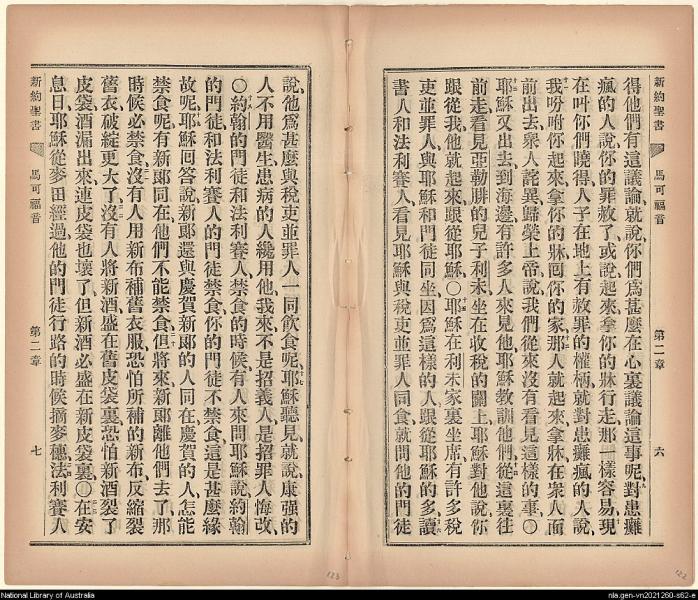 新約聖書 馬可福音 第二章 六
得他們有這議論就說你們爲甚麼在心裏議論這事呢對患癱
瘋的人說你的罪赦了或說起來拿你的牀行走那一樣容易現
在叫你們曉得人子在地上有赦罪的權柄就對患癱瘋的人說
我吩咐你起來拿你的牀回你的家那人就起來拿牀在衆人面
前出去衆人詫異歸榮上帝說我們從來沒有看見這樣的事○
耶穌又出去到海邊有許多人來見他耶穌教訓他們從這裏往
前走看見亞勒腓的兒子利未坐在收稅的關上耶穌對他說你
跟從我他就起來跟從耶穌○耶穌在利未家裏坐席有許多稅
吏並罪人與耶穌和門徒同坐因爲這樣的人跟從耶穌的多讀
書人和法利賽人看見耶穌與稅吏並罪人同食就問他的門徒
說他爲甚麼與稅吏並罪人一同飲食呢耶穌聽見就說康强的
人不用醫生患病的人纔用他我來不是招義人是招罪人悔改
○約翰的門徒和法利賽人禁食的時候有人來問耶穌說約翰
的門徒和法利賽人的門徒禁食你的門徒不禁食這是甚麼緣
故呢耶穌回答說新郞還與慶賀新郞的人同在慶賀的人怎能
禁食呢有新郞同在他們不能禁食但將來新郞離他們去了那
時候必禁食沒有人用新布補舊衣服恐怕所補的新布反縮裂
舊衣破綻更大了沒有人將新酒盛在舊皮袋裏恐怕新酒裂了
皮袋酒漏出來連皮袋也壞了但新酒必盛在新皮袋裏○在安
息日耶穌從麥田經過他的門徒行路的時候摘麥穗法利賽人
新約聖書 馬可福音 第二章 七
123
122
National Library of Australia
nla.gen-vn2021260-s62-e